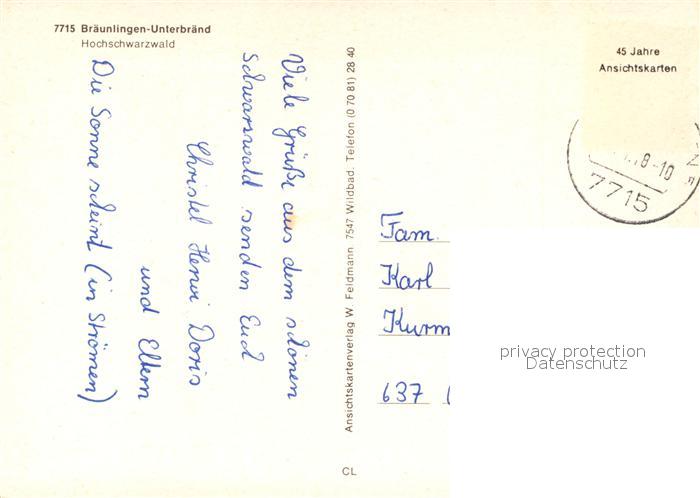 7715 Bräunlingen-Unterbränd
Hochschwarzwald
Viele Grüße aus dem schönen
Schwarzwald senden Euch
Christel Henri Doris
und Eltern
Die Sonne scheint (in Strömen)
Ansichtskartenverlag W. Feldmann 7547 Wildbad. Telefon (0 70 81) 28 40
CL
45 Jahre
Ansichtskarten
8-10
7715
Fam.
Karl
Kurm
637
privacy protection
Datenschutz